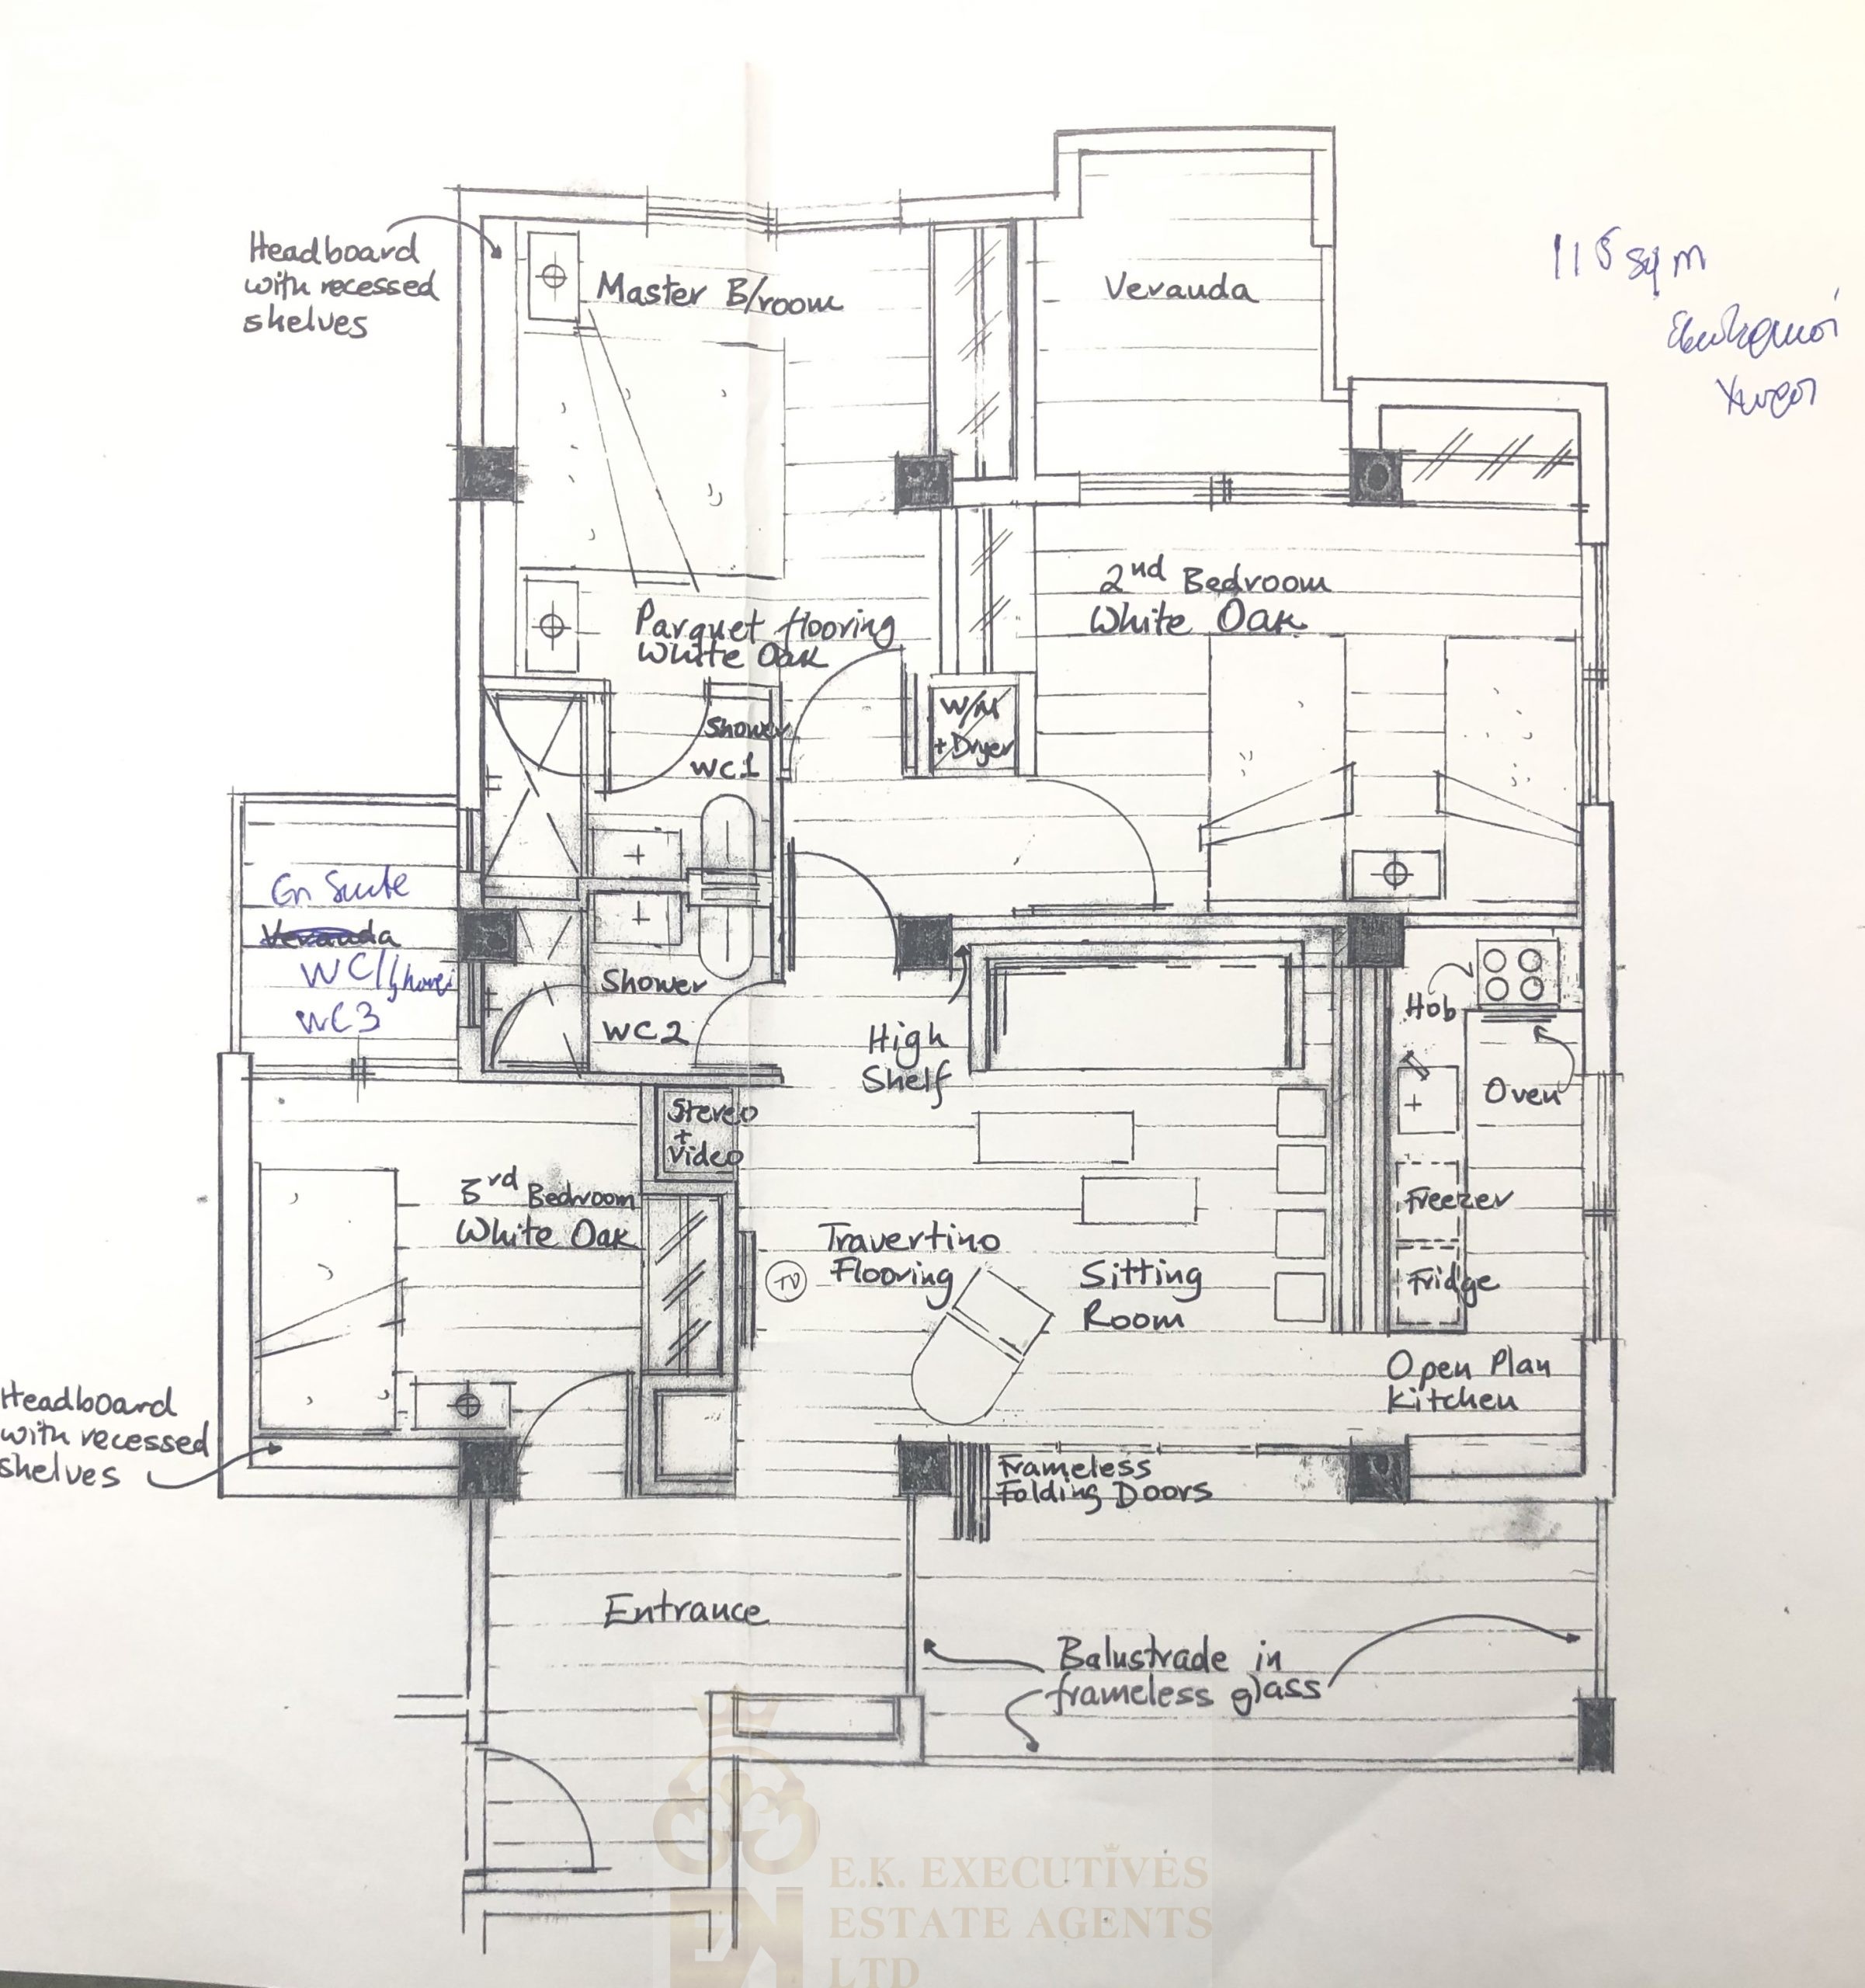 Headboard
with recessed
shelves
Master B/room
Veranda
115 sqm
Εσωτερικοί
χώροι
Parquet flooring
White Oak
2nd Bedroom
White Oak
Shower
WC1
W/M
+ Dryer
En Suite
WC/Shower
WC3
Shower
WC2
High
Shelf
Hob
Oven
Stereo
+
Video
3rd Bedroom
White Oak
TV
Travertino
Flooring
Sitting
Room
Freezer
Fridge
Open Plan
Kitchen
Headboard
with recessed
shelves
Frameless
Folding Doors
Entrance
Balustrade in
frameless glass
E.K. EXECUTIVES
ESTATE AGENTS
LTD